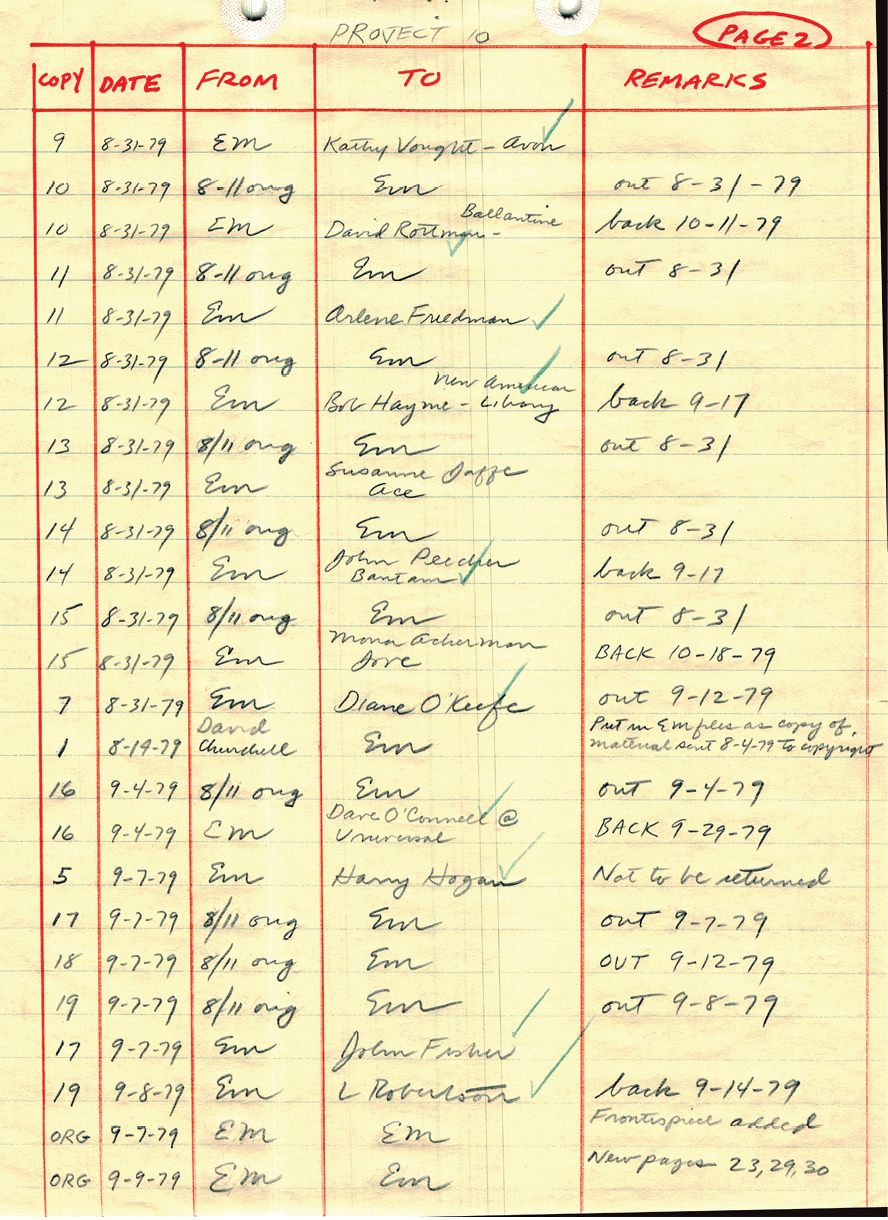 PROJECT 10
PAGE 2
COPY DATE FROM TO REMARKS
9 8-31-79 EM Kathy Vought - Avon
10 8-31-79 8-11 orig Em out 8-31-79
10 8-31-79 EM David Rottman - Ballantine back 10-11-79
11 8-31-79 8-11 orig Em out 8-31
11 8-31-79 Em Arlene Friedman
12 8-31-79 8-11 orig Em out 8-31
12 8-31-79 Em Bob Hayme - New American Library back 9-17
13 8-31-79 8/11 orig Em out 8-31
13 8-31-79 Em Susanne Jaffe
Ace
14 8-31-79 8/11 orig Em out 8-31
14 8-31-79 Em John Peecher
Bantam back 9-17
15 8-31-79 8/11 orig Em out 8-31
15 8-31-79 Em Mona Ackerman
Jove BACK 10-18-79
7 8-31-79 Em Diane O'Keefe out 9-12-79
1 8-19-79 David
Churchell Em Put in Em files as copy of
material sent 8-4-79 to copyright
16 9-4-79 8/11 orig Em out 9-4-79
16 9-4-79 Em Dave O'Connell @
Universal BACK 9-29-79
5 9-7-79 Em Harry Hogan Not to be returned
17 9-7-79 8/11 orig Em out 9-7-79
18 9-7-79 8/11 orig Em OUT 9-12-79
19 9-7-79 8/11 orig Em out 9-8-79
17 9-7-79 Em John Fisher
19 9-8-79 Em L Robertson back 9-14-79
ORG 9-7-79 EM EM Frontispiece added
ORG 9-9-79 EM Em New pages 23,29,30